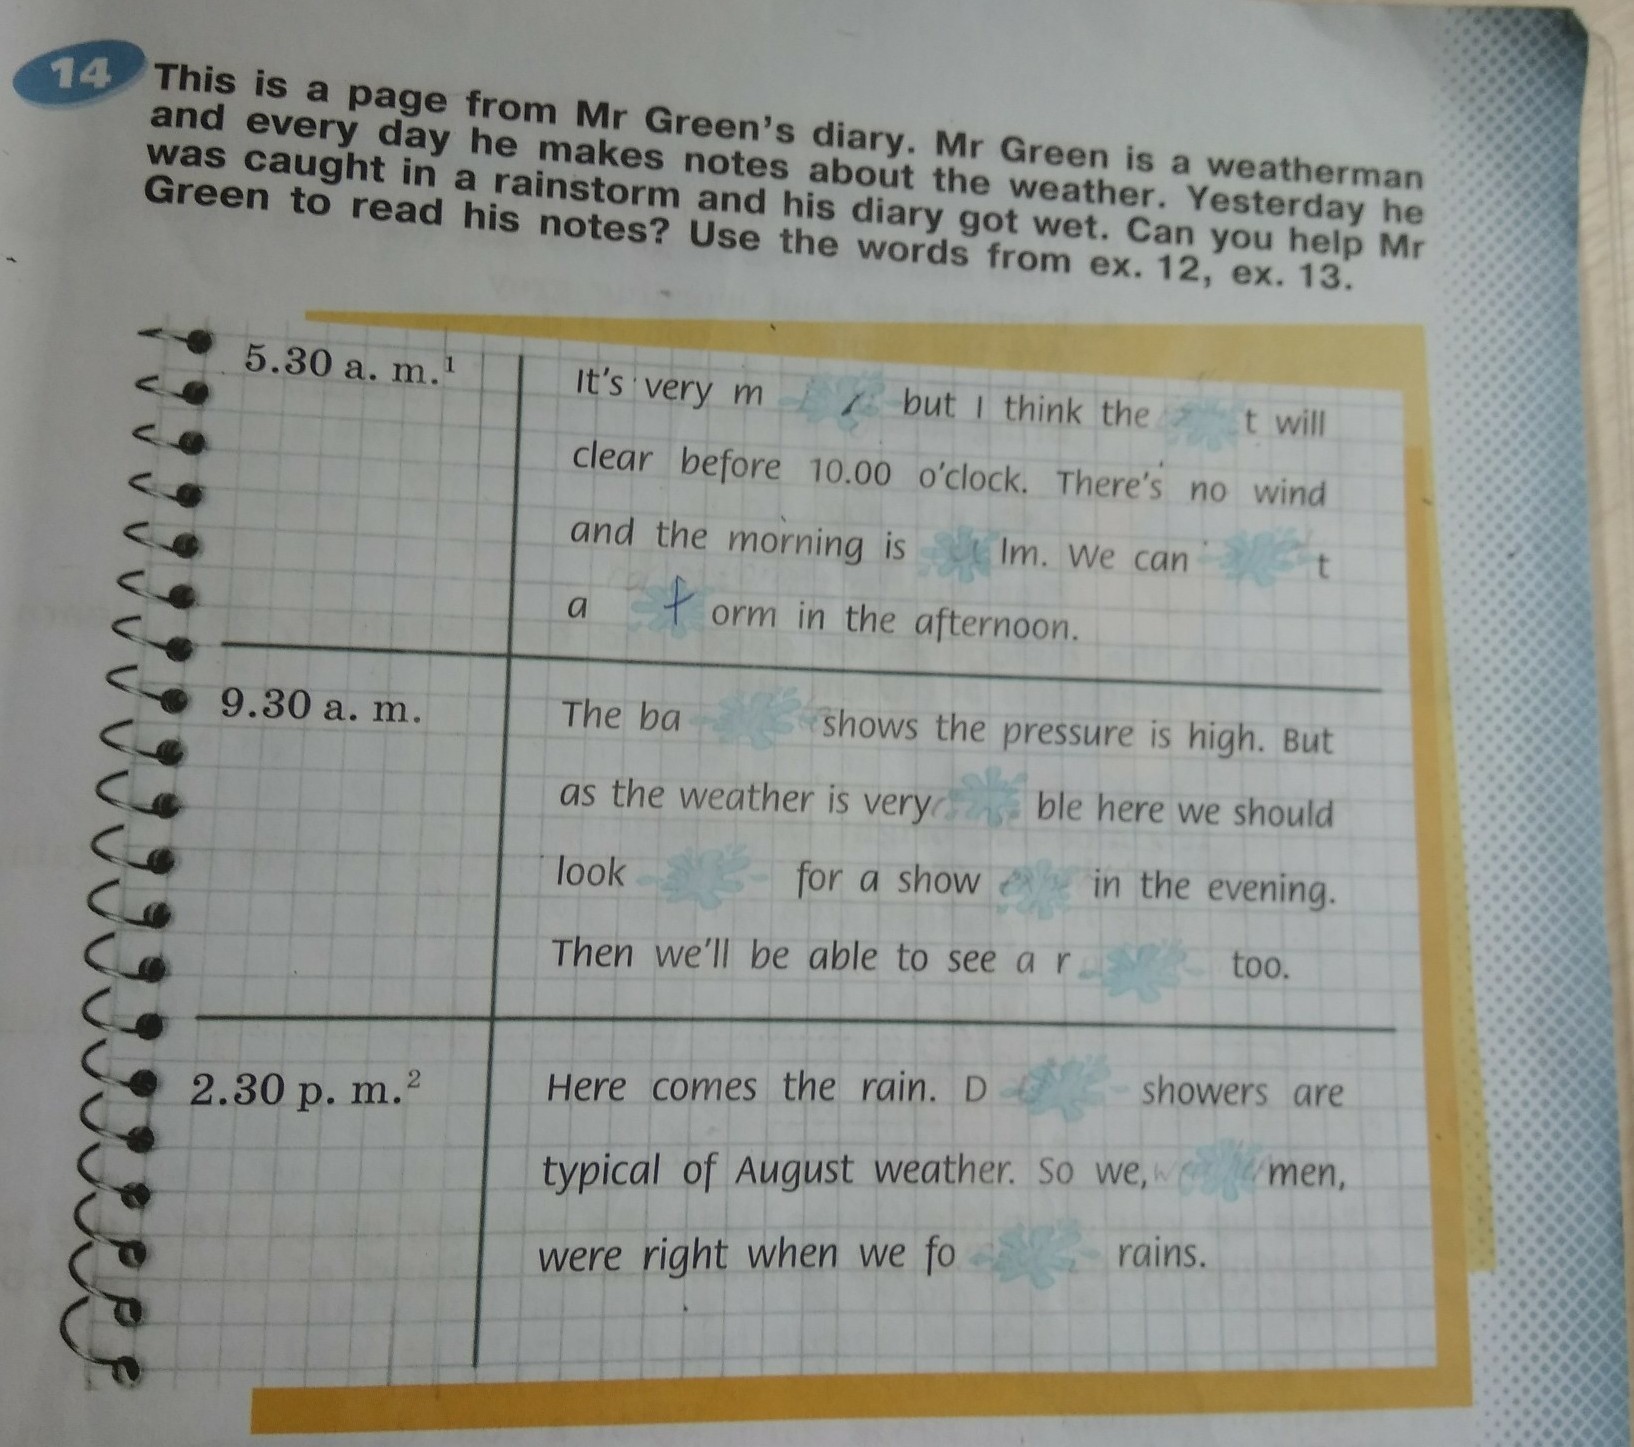 14 This is a page from Mr Green's diary. Mr Green is a weatherman
and every day he makes notes about the weather. Yesterday he
was caught in a rainstorm and his diary got wet. Can you help Mr
Green to read his notes? Use the words from ex. 12, ex. 13.
5.30 a. m.¹
It's very m but I think the t will
clear before 10.00 o'clock. There's no wind
and the morning is lm. We can t
a t orm in the afternoon.
9.30 a. m.
The ba shows the pressure is high. But
as the weather is very ble here we should
look for a show in the evening.
Then we'll be able to see a r too.
2.30 p. m.²
Here comes the rain. D showers are
typical of August weather. So we, men,
were right when we fo rains.